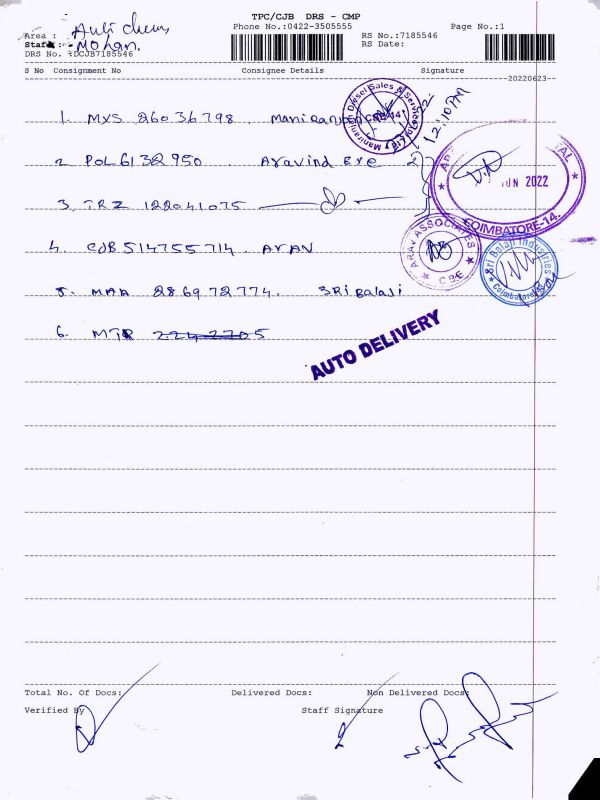 TPC/CJB DRS - CMP
Area :
Phone No.:0422-3505555
Page No.:1
Staff : Mohan.
RS No.:7185546
RS Date:
DRS No. :DCJB7185546
S No Consignment No Consignee Details Signature
20220623
1. MYS 26036798 . Maniranjan
12:10 PM
2. POL 6132950 . Aravind Eye 2)
3. TRZ 122041075
4. CJB 514755714 ARAV
5. MAA 286972774. SRI Balaji
6.
Maniranjan Diesel Sales & Service
CBE-14
JUN 2022
COIMBATORE-14.
ARAV ASSOCIATES
CBE
Sri Balaji Industries
Coimbatore
AUTO DELIVERY
Total No. Of Docs: Delivered Docs: Non Delivered Docs:
Verified By Staff Signature